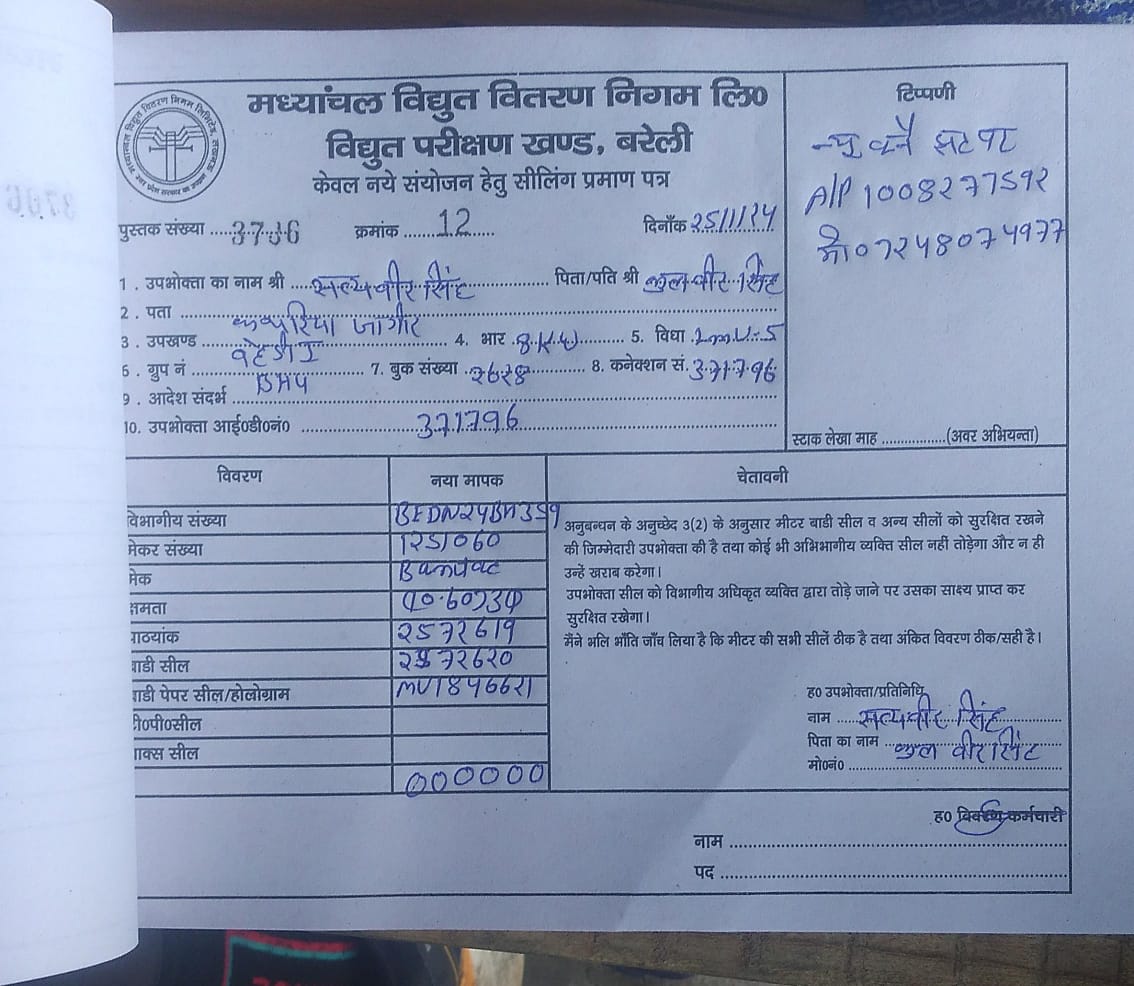 मध्यांचल विद्युत वितरण निगम लि०
विद्युत परीक्षण खण्ड, बरेली
केवल नये संयोजन हेतु सीलिंग प्रमाण पत्र
पुस्तक संख्या ..... 3736 क्रमांक ....... 12 ...... दिनाँक 25/1/24
1 . उपभोक्ता का नाम श्री .... सत्यवीर सिंह ............... पिता/पति श्री कुलवीर सिंह
2 . पता ...... जागीर
3 . उपखण्ड ........ 4. भार . 8KW ......... 5. विधा .
6 . ग्रुप नं ...... BH4 ...... 7. बुक संख्या . 2628 .......... 8. कनेक्शन सं. 371796
9 . आदेश संदर्भ ......
10. उपभोक्ता आई०डी०नं० ................. 371796
टिप्पणी
न्यू कनै झटपट
A/P 1008277592
मो० 7248074977
स्टाक लेखा माह ................(अवर अभियन्ता)
विवरण नया मापक चेतावनी
विभागीय संख्या
मेकर संख्या 1251060
मेक
क्षमता 10-60
पाठयांक 2572619
बाडी सील 2572620
बाडी पेपर सील/होलोग्राम
टी०पी०सील
बाक्स सील
000000
अनुबन्धन के अनुच्छेद 3(2) के अनुसार मीटर बाडी सील व अन्य सीलों को सुरक्षित रखने
की जिम्मेदारी उपभोक्ता की है तथा कोई भी अभिभागीय व्यक्ति सील नहीं तोड़ेगा और न ही
उन्हें खराब करेगा।
उपभोक्ता सील को विभागीय अधिकृत व्यक्ति द्वारा तोड़े जाने पर उसका साक्ष्य प्राप्त कर
सुरक्षित रखेगा।
मैंने भलि भाँति जाँच लिया है कि मीटर की सभी सीलें ठीक है तथा अंकित विवरण ठीक/सही है।
ह० उपभोक्ता/प्रतिनिधि
नाम ..... सत्यवीर सिंह ............
पिता का नाम .. कुल वीर सिंह
मो०नं० ..............................
ह० कर्मचारी
नाम ..............................
पद ..............................